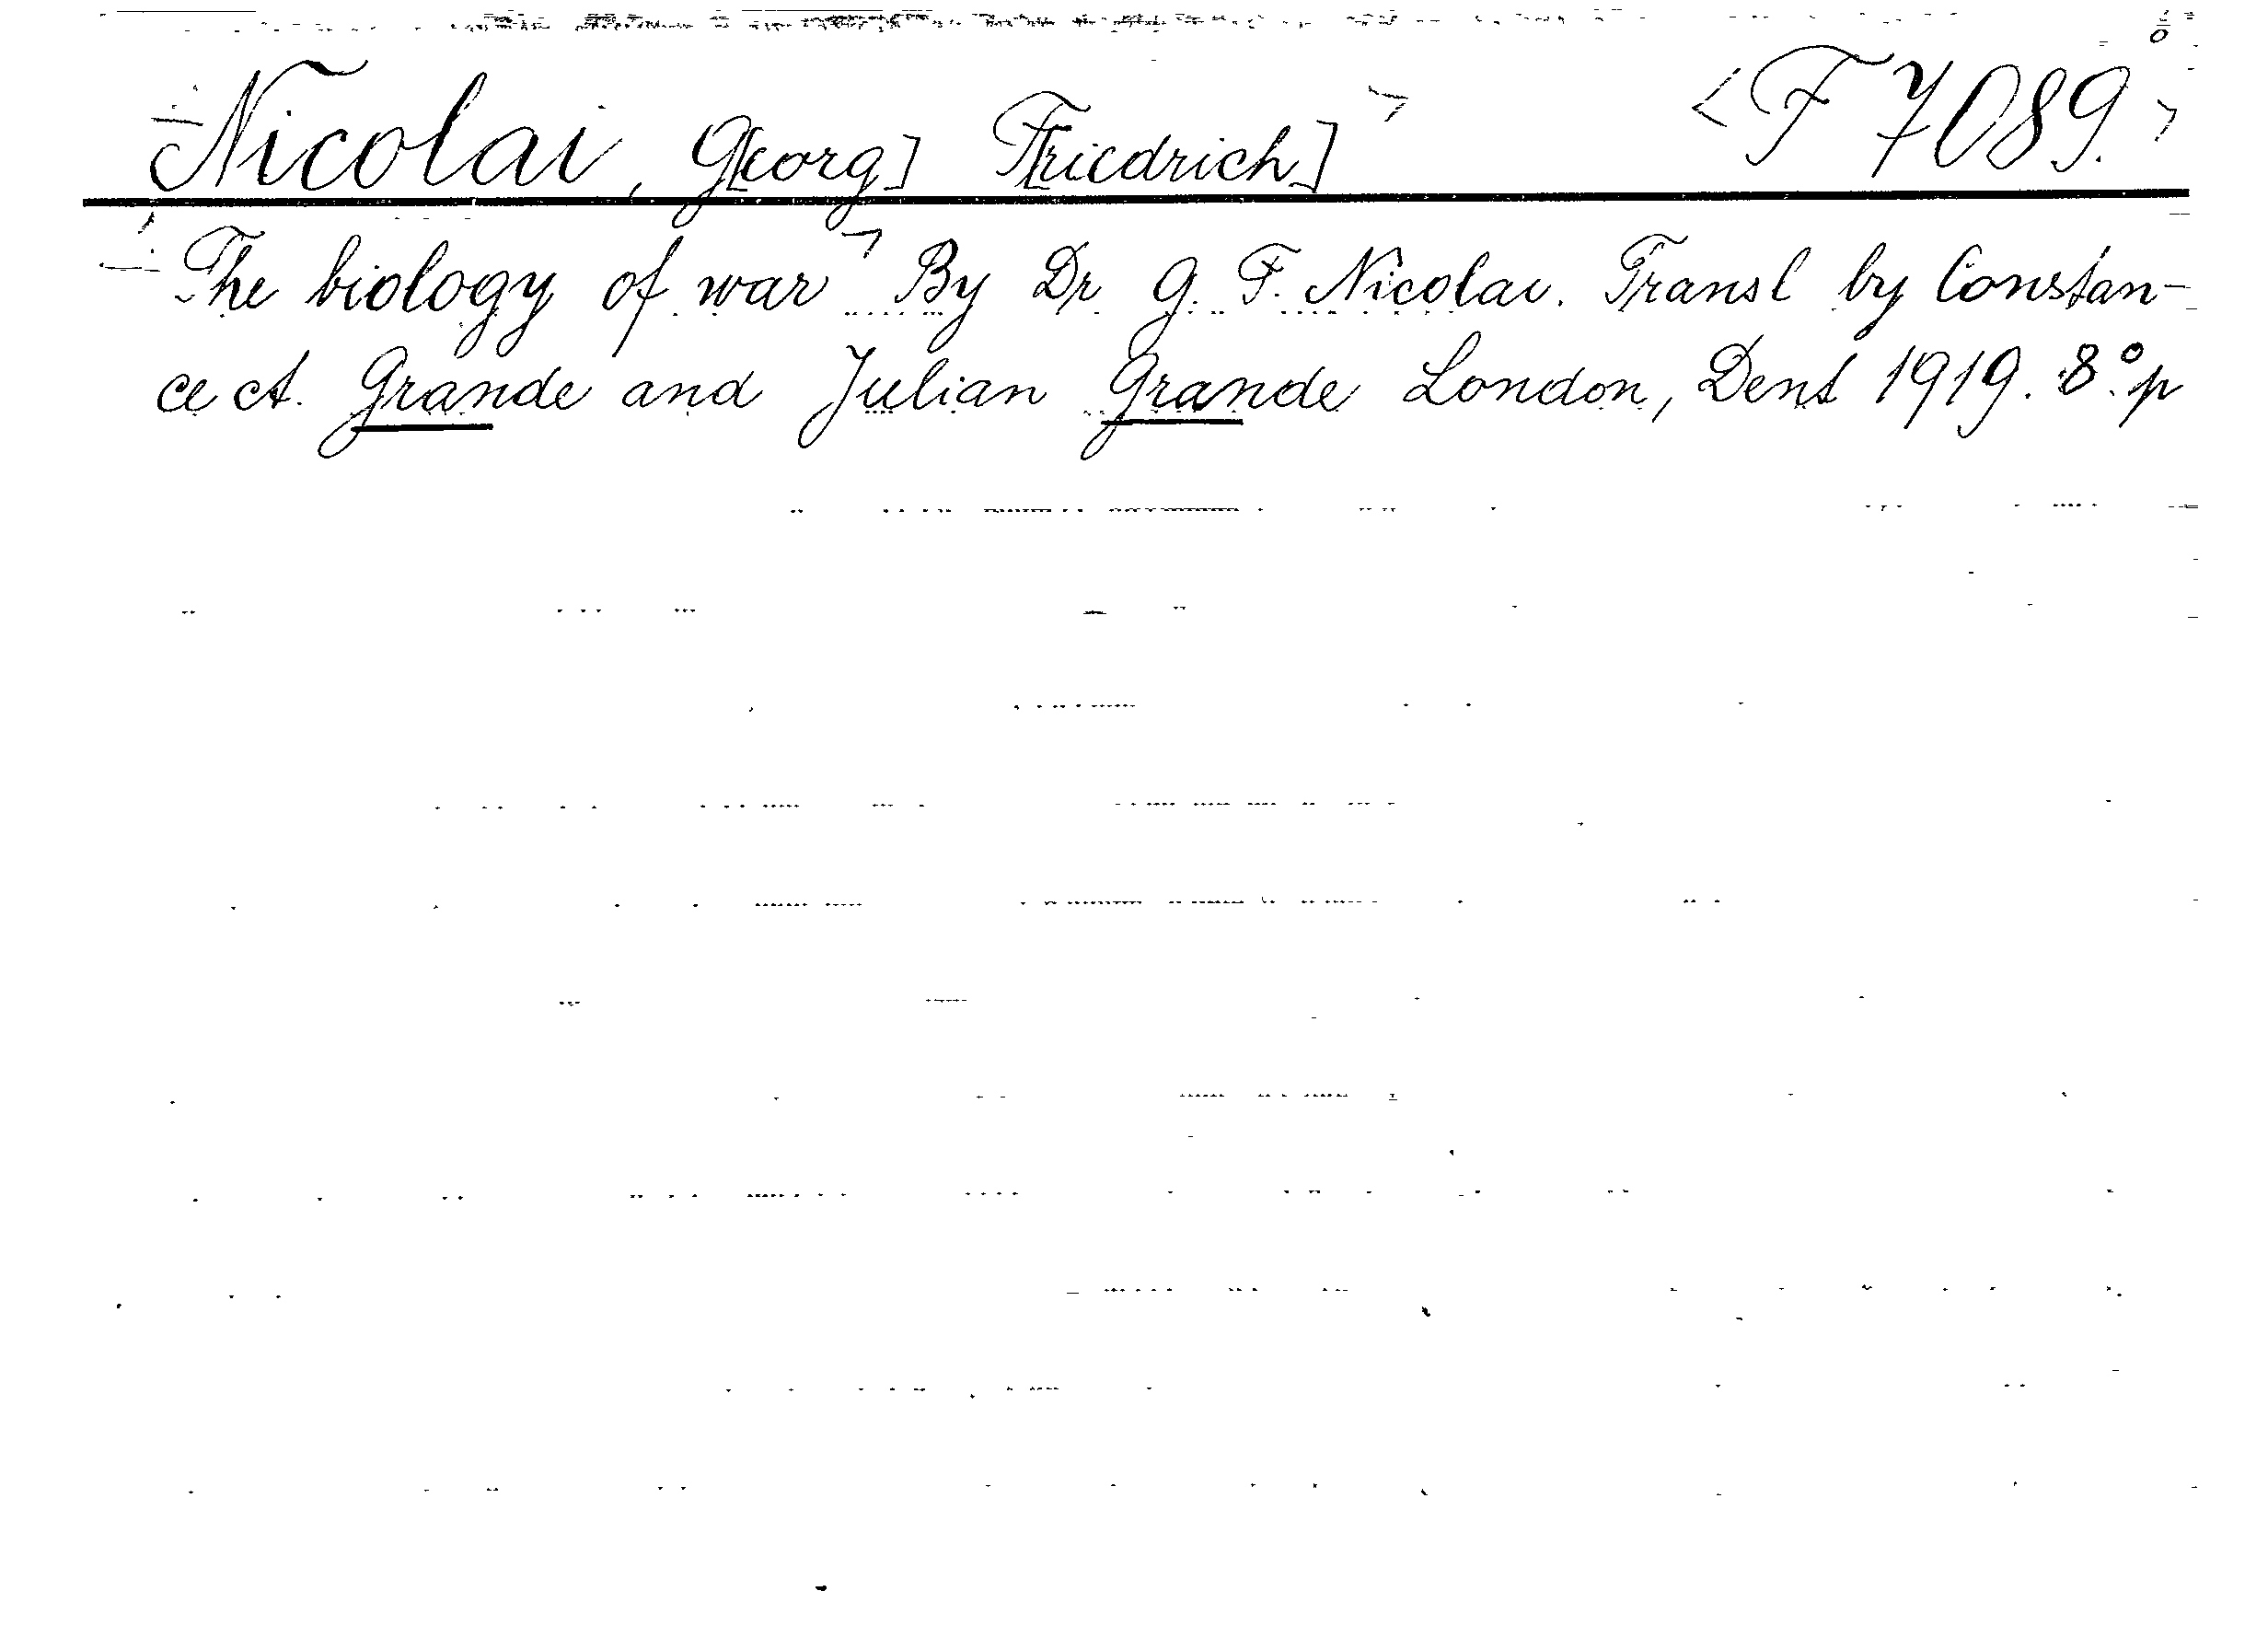 Nicolai, G[eorg] F[riedrich] <F 7089.>
The biology of war By Dr G. F. Nicolai. Transl by Constan-
ce A. Grande and Julian Grande London, Dent 1919. 8.° p